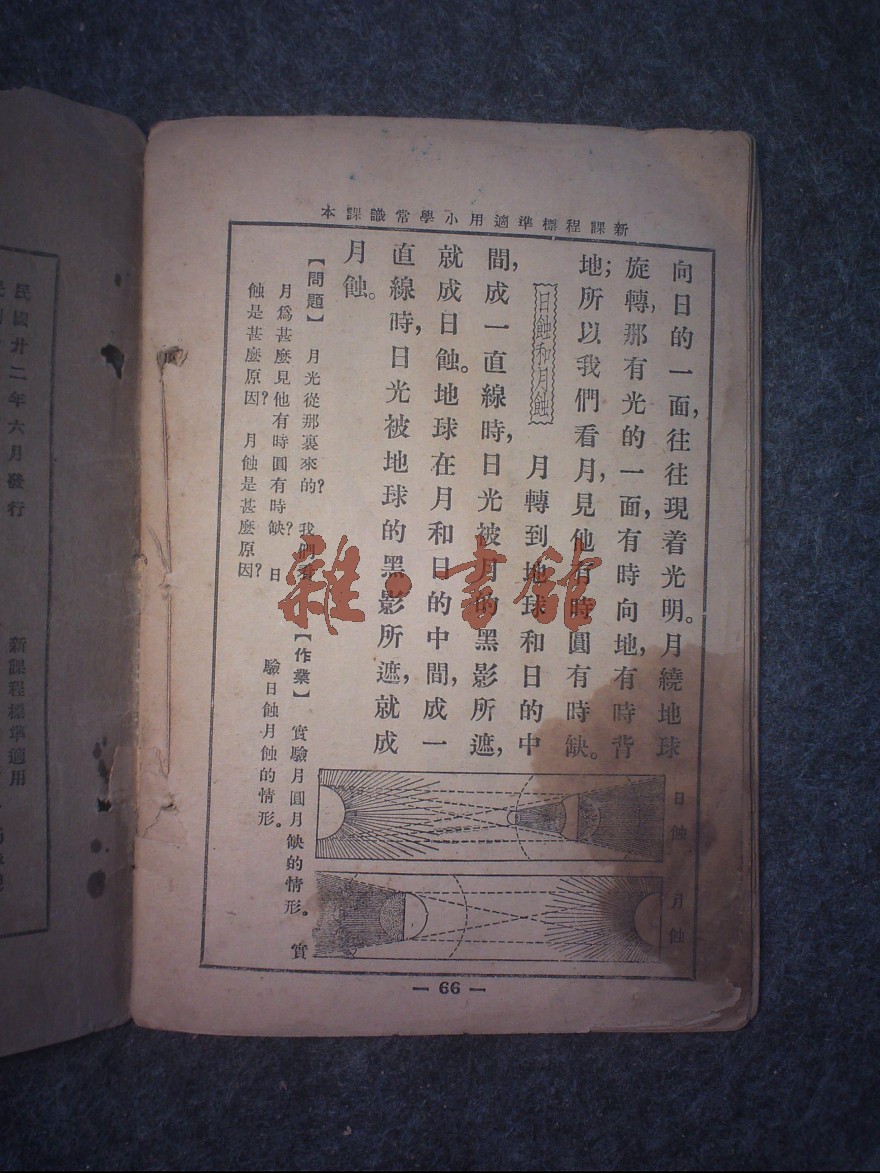 新課程標準適用小學常識課本
向日的一面，往往現着光明。月繞地球
旋轉，那有光的一面，有時向地，有時背
地；所以我們看月，見他有時圓有時缺。
日蝕和月蝕　月轉到地球和日的中
間，成一直線時，日光被月的黑影所遮，
就成日蝕。地球在月和日的中間，成一
直線時，日光被地球的黑影所遮，就成
月蝕。
日蝕
月蝕
【問題】　月光從那裏來的？　我們看
月爲甚麽見他有時圓有時缺？　日
蝕是甚麽原因？　月蝕是甚麽原因？
【作業】　實驗月圓月缺的情形。　實
驗日蝕月蝕的情形。
— 66 —
雜·書館
民國廿二年六月發行
新課程標準適用